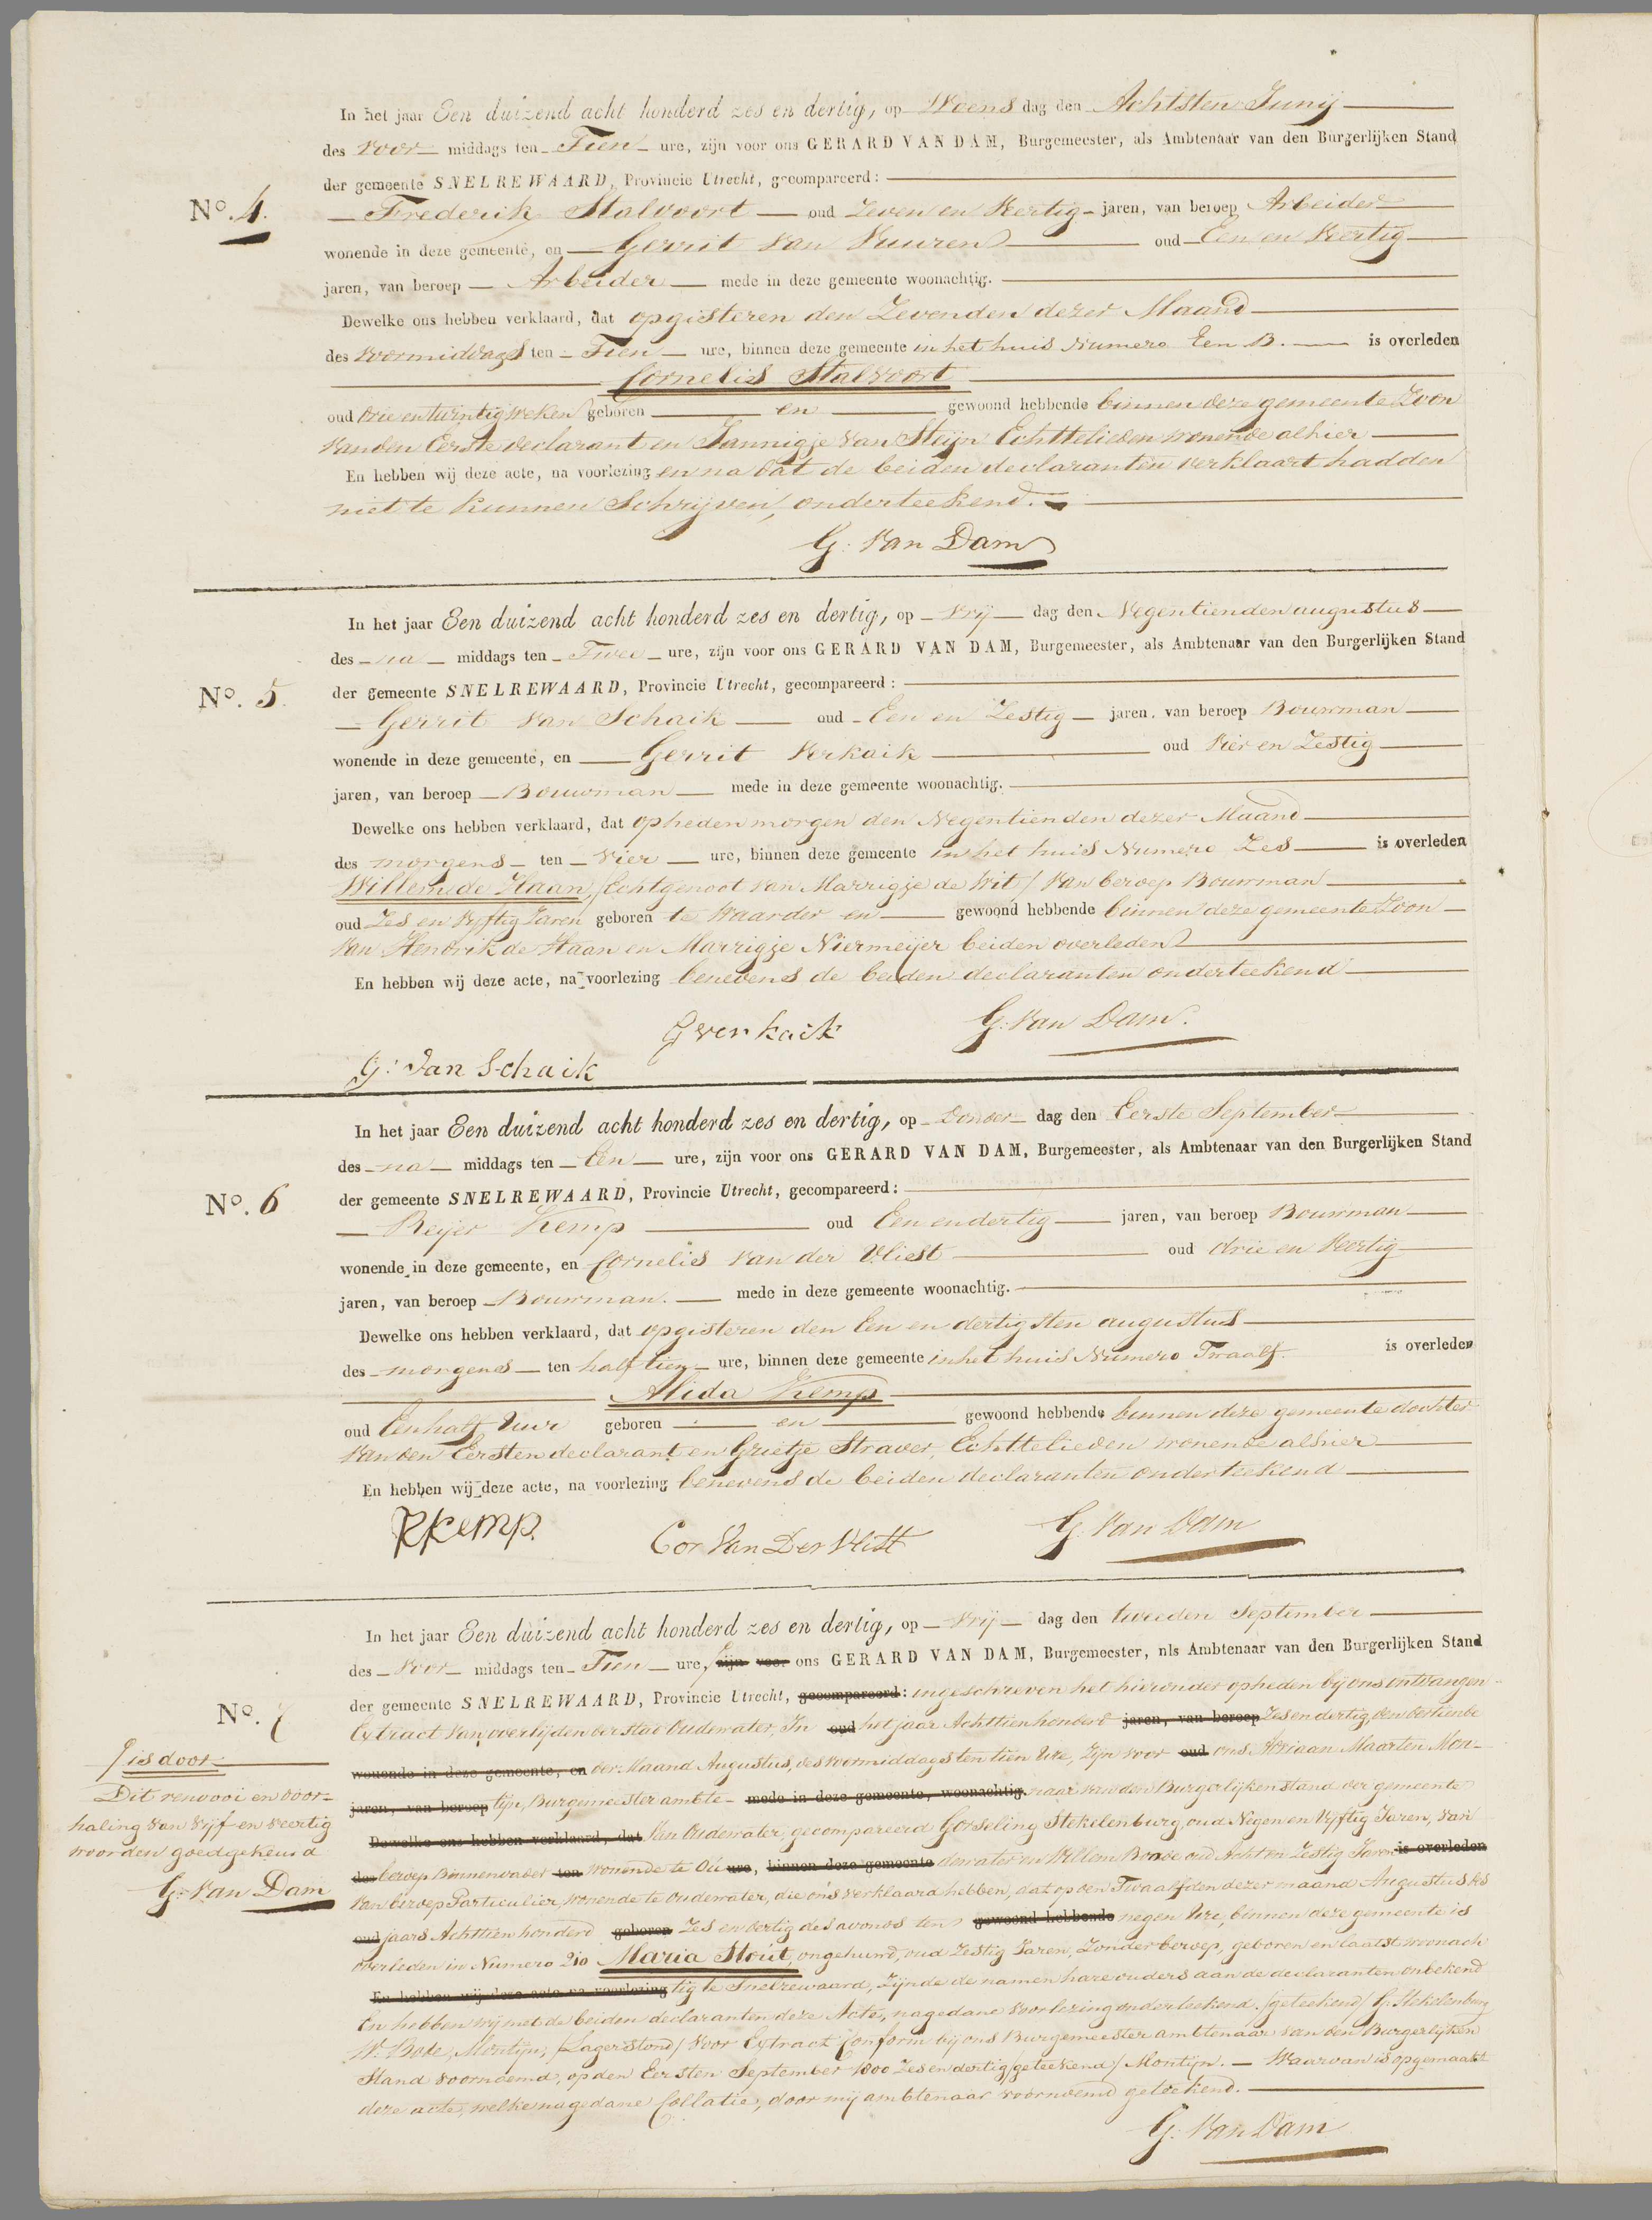 In het jaar Een duizend acht honderd zes en dertig, op Woens dag den Achtsten Junij
des voor middags ten Tien ure, zijn voor ons GERARD VAN DAM, Burgemeester, als Ambtenaar van den Burgerlijken Stand
der gemeente SNELREWAARD, Provincie Utrecht, gecompareerd:
No. 4.
Frederik Stalvoort oud Zeven en Veertig jaren, van beroep Arbeider
wonende in deze gemeente, en Gerrit van Vuuren oud Een en Veertig
jaren, van beroep Arbeider mede in deze gemeente woonachtig.
Dewelke ons hebben verklaard, dat opgisteren den Zevenden dezer Maand
des voormiddags ten Tien ure, binnen deze gemeente in het huis Numero Een B. is overleden
Cornelis Stalvoort
oud drie en twintig weken geboren en gewoond hebbende binnen deze gemeente Zoon
van den Eerste declarant en Jannigje van Steijn Echttelieden wonende alhier
En hebben wij deze acte, na voorlezing en na dat de beiden declaranten verklaart hadden
niet te kunnen Schrijven, onderteekend.
G. van Dam
In het jaar Een duizend acht honderd zes en dertig, op Vrij dag den Negentienden augustus
des na middags ten Twee ure, zijn voor ons GERARD VAN DAM, Burgemeester, als Ambtenaar van den Burgerlijken Stand
No. 5.
der gemeente SNELREWAARD, Provincie Utrecht, gecompareerd:
Gerrit van Schaik oud Een en Zestig jaren, van beroep Bouwman
wonende in deze gemeente, en Gerrit Verkaik oud Vier en Zestig
jaren, van beroep Bouwman mede in deze gemeente woonachtig.
Dewelke ons hebben verklaard, dat opheden morgen den Negentienden dezer Maand
des morgens ten vier ure, binnen deze gemeente in het huis Numero Zes is overleden
Willem de Haan, /Echtgenoot van Marrigje de Wit/ van beroep Bouwman
oud Zes en Vyftig Jaren geboren te Waarder en gewoond hebbende binnen deze gemeente Zoon
van Hendrik de Haan en Marrigje Niermeijer beiden overleden
En hebben wij deze acte, na voorlezing benevens de beiden declaranten onderteekend
G verkaik G. van Dam.
G. van Schaik
In het jaar Een duizend acht honderd zes en dertig, op Donder dag den Eerste September
des na middags ten Een ure, zijn voor ons GERARD VAN DAM, Burgemeester, als Ambtenaar van den Burgerlijken Stand
No. 6
der gemeente SNELREWAARD, Provincie Utrecht, gecompareerd:
Reijer Kemp oud Een en dertig jaren, van beroep Bouwman
wonende in deze gemeente, en Cornelis van der Vliest oud drie en Veertig
jaren, van beroep Bouwman. mede in deze gemeente woonachtig.
Dewelke ons hebben verklaard, dat opgisteren den Een en dertigsten augustus
des morgens ten half tien ure, binnen deze gemeente in het huis Numero Twaalf. is overleden
Alida Kemp
oud Een half Uur geboren en gewoond hebbende binnen deze gemeente dochter
van den Eersten declarant en Grietje Straver, Echttelieden wonende alhier
En hebben wij deze acte, na voorlezing benevens de beiden declaranten onderteekend
R Kemp. Cor Van Der Vlist G. van Dam
In het jaar Een duizend acht honderd zes en dertig, op Vrij dag den tweeden September
des Voor middags ten Tien ure, / zijn voor ons GERARD VAN DAM, Burgemeester, als Ambtenaar van den Burgerlijken Stand
No. 7
der gemeente SNELREWAARD, Provincie Utrecht, gecompareerd: ingeschreven het hieronder opheden bij ons ontvangen
Extract van overlijden der stad Oudewater, In oud het jaar Achttienhonderd jaren, van beroep Zes en dertig, den dertiende
wonende in deze gemeente, en der Maand Augustus, des voormiddags ten tien Ure, Zijn voor oud ons Adriaan Maarten Mon-
jaren, van beroep tijn, Burgemeester ambte- mede in deze gemeente, woonachtig. naar van den Burgerlijken stand der gemeente
Dewelke ons hebben verklaard, dat van Oudewater, gecompareerd Gorseling Stekelenburg, oud Negen en Vyftig Jaren, van
des beroep Binnenvader ten wonende te Ou ure, binnen deze gemeente dewater en Willem Bode oud Acht en Zestig Jaren is overleden
van beroep Particulier, wonende te Oudewater, die ons verklaard hebben, dat op den Twaalfden dezer maand Augustus des
oud jaars Achttien honderd geboren Zes en dertig des avonds ten gewoond hebbende negen Ure, binnen deze gemeente is
overleden in Numero 210 Maria Stout, ongehuwd, oud Zestig Jaren, Zonder beroep, geboren en laatst woonach
En hebben wij deze acte, na voorlezing tig te Snelrewaard, Zijnde de namen hare ouders aan de declaranten onbekend
En hebben wij met de beiden declaranten deze Acte, na gedane voorlezing onderteekend. /geteekend/ G. Stekelenburg
W. Bode, Montijn, /Lager stond/ Voor Extract Conform bij ons Burgemeester ambtenaar van den Burgerlijken
Stand voornoemd, op den Eersten September 1800 Zes en dertig /geteekend/ Montijn. Waarvan is opgemaakt
deze acte, welke na gedane Collatie, door mij ambtenaar voornoemd geteekend.
G. van Dam
/ is door
Dit renvooi en door-
haling van Vijf en veertig
woorden goedgekeurd
G. van Dam